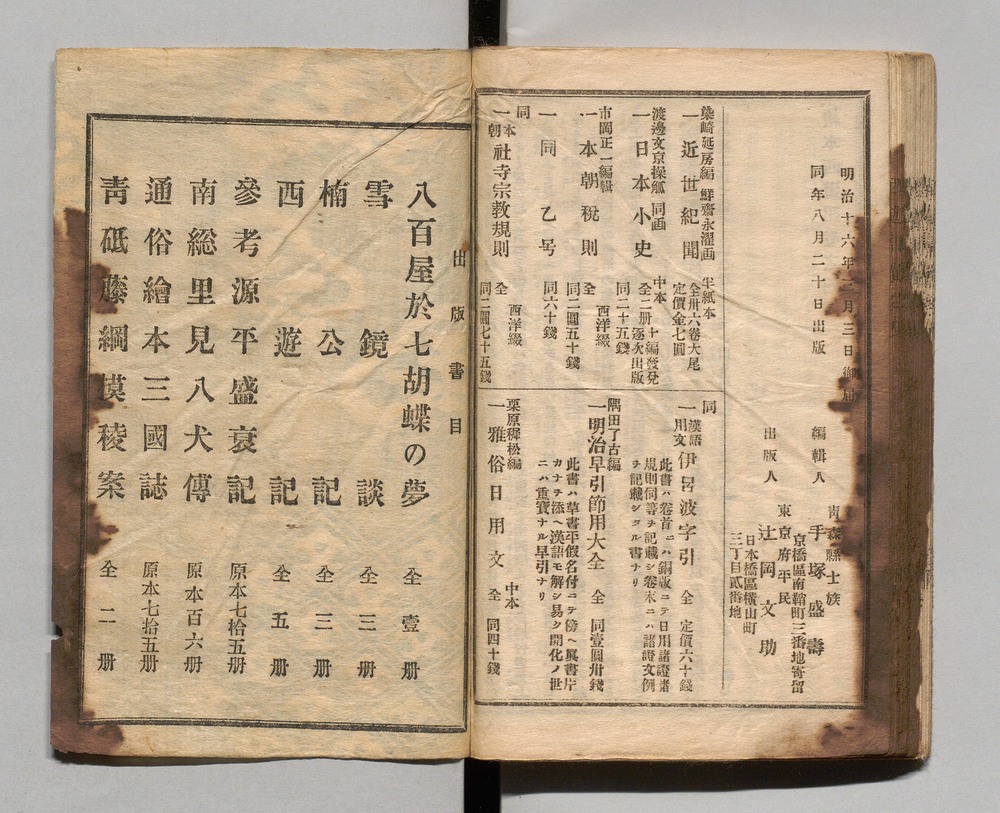 明治十六年二月三日御届
同年八月二十日出版
編輯人
青森縣士族
手塚盛壽
京橋區南鞘町三番地寄留
出版人
東京府平民
辻岡文助
日本橋區横山町
三丁目貳番地
染崎延房編 鮮齋永濯画
一近世紀聞
半紙本
全卅六卷大尾
定價金七圓
渡邊文京操觚 同画
一日本小史
中本
全二册
十編發兌
逐次出版
同二十五錢
市岡正一編輯
一本朝税則
全
西洋綴
同二圓五十錢
一同乙号
同六十錢
同
一本朝社寺宗教規則
全
西洋綴
同二圓七十五錢
同
一漢語用文伊呂波字引 全 定價六十錢
此書ハ卷首ニハ銅版ニテ日用諸證書
規則伺等ヲ記載シ卷末ニハ諸證文例
ヲ記載シタル書ナリ
隅田了古編
一明治早引節用大全 全 同壹圓卅錢
此書ハ草書平假名付ニテ傍ヘ眞書片
カナヲ添ヘ漢語モ解シ易ク開化ノ世
ニハ重寳ナル早引ナリ
栗原穉松編
一雅俗日用文 全 中本 同四十錢
出版書目
八百屋於七胡蝶の夢 全壹册
雪鏡談 全三册
楠公記 全三册
西遊記 全五册
參考源平盛衰記 原本七拾五册
南総里見八犬傳 原本百六册
通俗繪本三國誌 原本七拾五册
靑砥藤綱模稜案 全二册